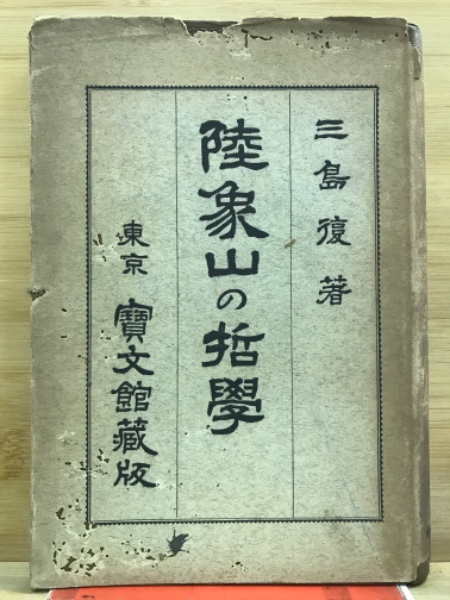 三島復著
陸象山の哲學
東京 寶文館藏版